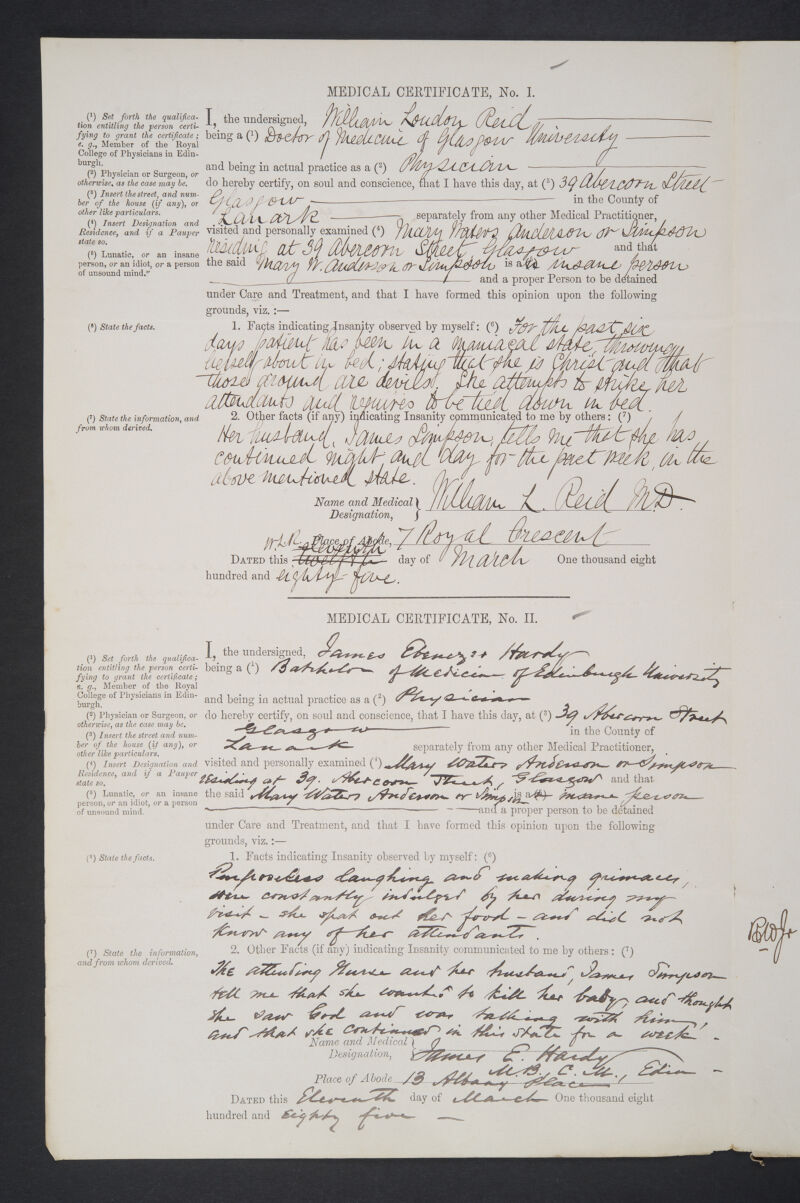 MEDICAL CERTIFICATE, No. I.
(¹) Set forth the qualifica-
tion entitling the person certi-
fying to grant the certificate;
e. g., Member of the Royal
College of Physicians in Edin-
burgh.
(²) Physician or Surgeon, or
otherwise, as the case may be.
(³) Insert the street, and num-
ber of the house (if any), or
other like particulars.
(⁴) Insert Designation and
Residence, and if a Pauper
state so.
(⁵) Lunatic, or an insane
person, or an idiot, or a person
of unsound mind."
I, the undersigned, William Loudon Reid
being a (¹) Doctor of Medicine of Glasgow University
and being in actual practice as a (²) Physician
do hereby certify, on soul and conscience, that I have this day, at (³) 39 Abercorn Street
Glasgow in the County of
Lanark separately from any other Medical Practitioner,
visited and personally examined (⁴) Mary Waters Anderson or Simpson
residing at 39 Abercorn Street Glasgow and that
the said Mary W. Anderson or Simpson is a insane person
and a proper Person to be detained
under Care and Treatment, and that I have formed this opinion upon the following
grounds, viz.:—
(⁶) State the facts.
1. Facts indicating Insanity observed by myself: (⁶) For the past six
days patient has been in a maniacal state, throwing
herself about in bed; stating that she is Christ and that
those around are devils. She attempts to strike her
attendants and requires to be tied down in bed.
(⁷) State the information, and
from whom derived.
2. Other facts (if any) indicating Insanity communicated to me by others: (⁷)
Her husband, James Simpson, tells me that she has
continued night and day for the past week, in the
above mentioned state.
Name and Medical
Designation, William L. Reid M.D.
W.L.R. Place of Abode, 7 Royal Crescent
eleventh
DATED this twelfth day of March One thousand eight
hundred and eighty five.
MEDICAL CERTIFICATE, No. II.
(¹) Set forth the qualifica-
tion entitling the person certi-
fying to grant the certificate;
e. g., Member of the Royal
College of Physicians in Edin-
burgh.
(²) Physician or Surgeon, or
otherwise, as the case may be.
(³) Insert the street and num-
ber of the house (if any), or
other like particulars.
(⁴) Insert Designation and
Residence, and if a Pauper
state so.
(⁵) Lunatic, or an insane
person, or an idiot, or a person
of unsound mind.
I, the undersigned, James Ebenezer Hardy
being a (¹) Batchelor of Medicine of Edinburgh University
and being in actual practice as a (²) Physician
do hereby certify, on soul and conscience, that I have this day, at (³) 39 Abercorn Street
Glasgow in the County of
Lanark separately from any other Medical Practitioner,
visited and personally examined (⁴) Mary Waters Anderson or Simpson
residing at 39. Abercorn Street, Glasgow and that
the said Mary Waters Anderson or Simpson is a insane person
and a proper person to be detained
under Care and Treatment, and that I have formed this opinion upon the following
grounds, viz.:—
(⁶) State the facts.
1. Facts indicating Insanity observed by myself: (⁶)
Purposeless laughing and making grimaces,
were constantly indulged by her during my
visit - she spat out her food - and did not
know any of her attendants.
(⁷) State the information,
and from whom derived.
2. Other Facts (if any) indicating Insanity communicated to me by others: (⁷)
The attending Nurse and her husband, James Simpson
tell me that she wanted to kill her baby, and thought
she saw God and was talking with him,
and that she continued in this state for a week -
Name and Medical
Designation, James E. Hardy
M.B., C.M., Edin -
Place of Abode 13 Albany Place
DATED this Eleventh day of March One thousand eight
hundred and eighty five -